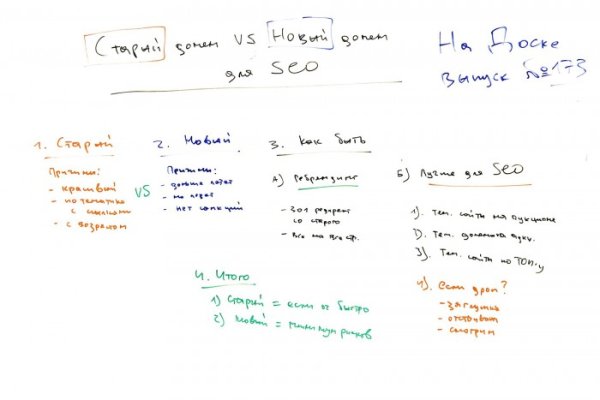 Старый домен VS Новый домен
для SEO
На Доске
выпуск №173
1. Старый
Причины:
- красивый
- по тематике
с ссылками
- с возрастом
VS
2. Новый
Причины:
- дольше
- не
- нет санкций
3. Как быть
А) Ребрендинг
- 301 редирект
со старого
- Все на все стр.
Б) Лучше для SEO
1). Тем. сайты на аукционе
2). Тем. домена аукц.
3). Тем. сайты по ТОП-у
4). если дроп?
- заглушка
- отстаиваем
- смотрим
4. Итого
1) Старый = если оч быстро
2) Новый = минимум рисков